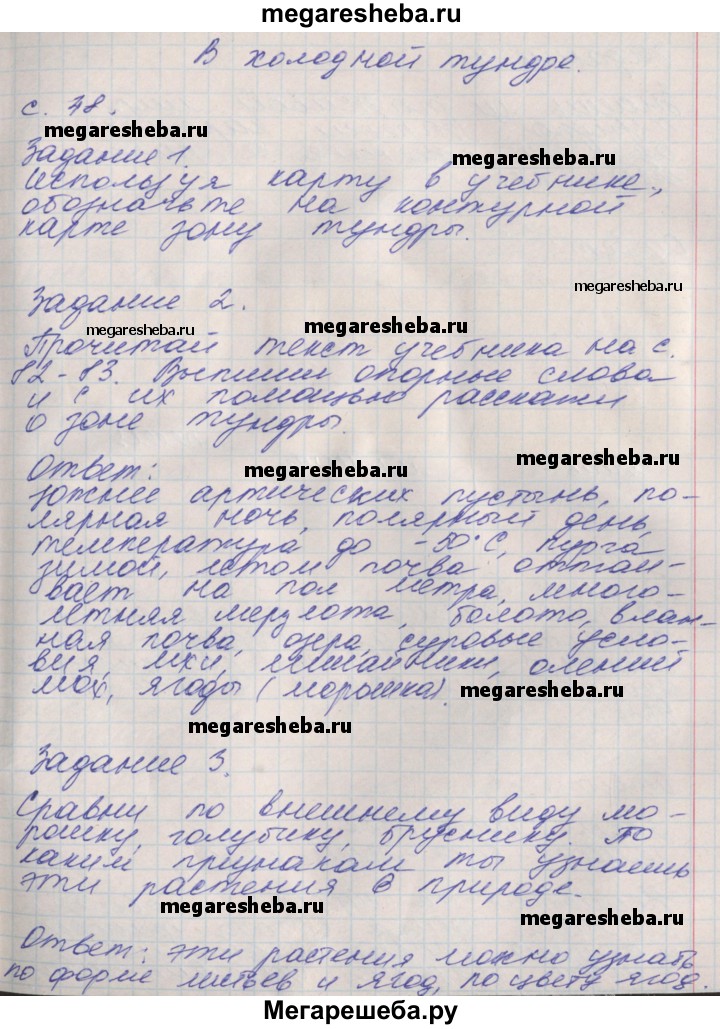 megaresheba.ru
В холодной тундре.
с. 38.
megaresheba.ru
Задание 1.
megaresheba.ru
Используя карту в учебнике,
обозначьте на контурной
карте зону тундры.
megaresheba.ru
Задание 2.
megaresheba.ru
megaresheba.ru
Прочитай текст учебника на с.
82-83. Выпиши опорные слова
и с их помощью расскажи
о зоне тундры.
megaresheba.ru
Ответ:
megaresheba.ru
южнее арктических пустынь, по-
лярная ночь, полярный день,
температура до -50°С, пурга
зимой, летом почва оттаи-
вает на пол метра, много-
летняя мерзлота, болота, влаж-
ная почва, озера, суровые усло-
вия, мхи, лишайники, олений
мох, ягоды (морошка).
megaresheba.ru
megaresheba.ru
Задание 3.
Сравни по внешнему виду мо-
рошку, голубику, бруснику. По
каким признакам ты узнаешь
эти растения в природе.
megaresheba.ru
megaresheba.ru
Ответ: эти растения можно узнать
по форме листьев и ягод, по цвету ягод.
Мегарешеба.ру